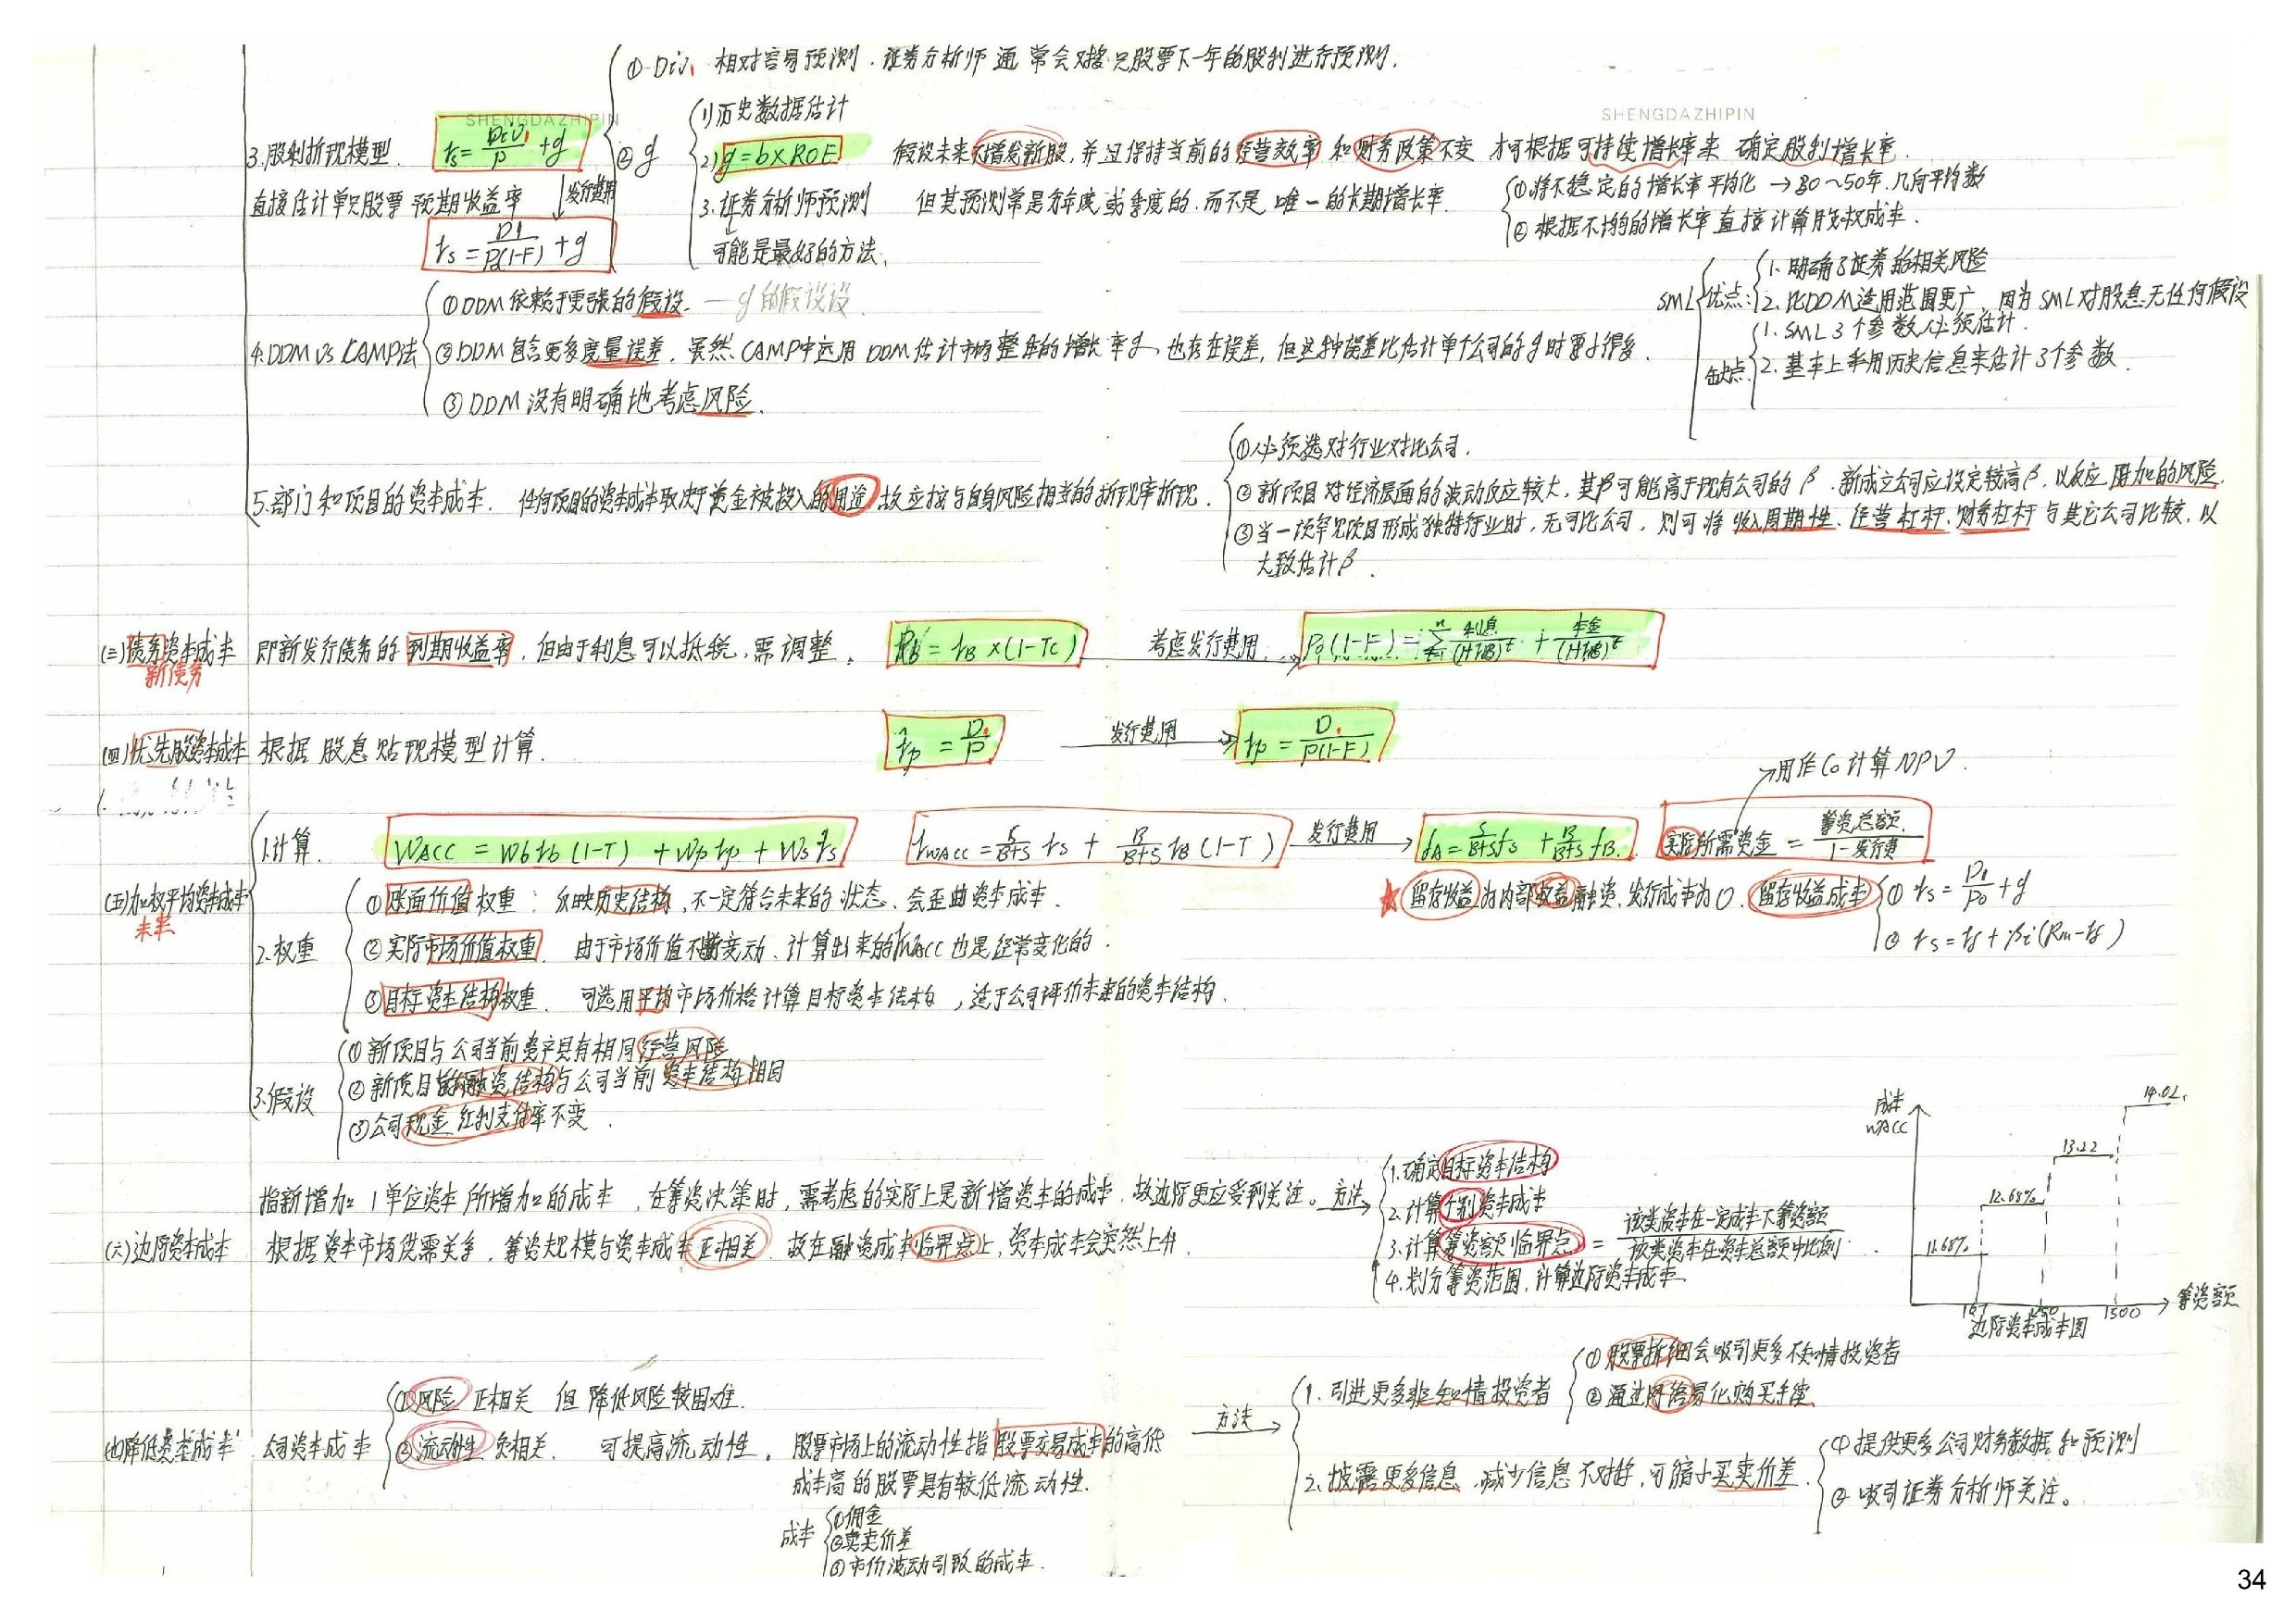 ① Div₁ 相对容易预测.证券分析师通常会对接只股票下一年的股利进行预测.
SHENGDAZHIPIN
SHENGDAZHIPIN
3.股利折现模型. rs=Div₁/P+g
直接估计单只股票预期收益率
发行费用
rs=D1/P0(1-F)+g
② g
1)历史数据估计
2) g=b×ROE 假设未来不增发新股,并且保持当前的经营效率和财务政策不变 才可根据可持续增长率来确定股利增长率.
3.证券分析师预测 但其预测常是分年度或季度的.而不是唯一的长期增长率.
可能是最好的方法.
①将不稳定的增长率平均化→30~50年.几何平均数
②根据不均的增长率直接计算股权成本.
4.DDM vs CAMP法
①DDM依赖于更强的假设. —g的假设设
②DDM包含更多度量误差.虽然CAMP中运用DDM估计市场整体的增长率g,也存在误差,但这种误差比估计单个公司的g时要小得多.
③DDM没有明确地考虑风险.
SML
优点:
1.明确了证券的相关风险
2.比DDM适用范围更广,因为SML对股息无任何假设
缺点
1.SML3个参数必须估计.
2.基本上采用历史信息来估计3个参数.
5.部门和项目的资本成本. 任何项目的资本成本取决于资金被投入的用途,故应按与自身风险相当的折现率折现.
①必须选对行业对比公司.
②新项目对经济层面的波动反应较大,其β可能高于现有公司的β.新成立公司应设定较高β,以反应附加的风险.
③当一项罕见项目形成独特行业时,无可比公司,则可将收入周期性、经营杠杆、财务杠杆与其它公司比较,以
大致估计β.
(三)债务资本成本 即新发行债务的到期收益率,但由于利息可以抵税,需调整. RB=rB×(1-Tc) 考虑发行费用. P0(1-F)=∑ 利息/(1+rB)^t + 本金/(1+rB)^t
新债务
(四)优先股资本成本 根据股息贴现模型计算. rp=D₁/P 发行费用 rp=D₁/P(1-F)
用作C0计算NPV.
(五)加权平均资本成本
未来
1.计算. WACC=Wb rb(1-T)+Wp rp+Ws rs
rWACC=S/B+S rs+B/B+S rB(1-T) 发行费用 fA=S/B+S fs+B/B+S fB. 实际所需资金=筹资总额/1-发行费
★留存收益为内部收益融资.发行成本为0. 留存收益成本
① rs=D1/P0+g
② rs=rf+βi(Rm-rf)
2.权重
①账面价值权重:反映历史结构,不一定符合未来的状态.会歪曲资本成本.
②实际市场价值权重. 由于市场价值不断变动.计算出来的rWACC也是经常变化的.
③目标资本结构权重. 可选用平均市场价格计算目标资本结构,适于公司评价未来的资本结构.
3.假设
①新项目与公司当前资产具有相同经营风险
②新项目的融资结构与公司当前资本结构相同
③公司现金红利支付率不变.
(六)边际资本成本
指新增加1单位资本所增加的成本,在筹资决策时,需考虑的实际上是新增资本的成本.故边际更应受到关注。方法
根据资本市场供需关系,筹资规模与资本成本正相关.故在融资成本临界点上,资本成本会突然上升.
1.确定目标资本结构
2.计算个别资本成本
3.计算筹资额临界点=该类资本在一定成本下筹资额/该类资本在资本总额中比例.
4.划分筹资范围,计算边际资本成本
成本
WACC
11.68%
12.68%
13.22
1500
筹资额
边际资本成本图
(七)降低资本成本 公司资本成本
①风险 正相关 但降低风险较困难.
②流动性 负相关. 可提高流动性。股票市场上的流动性指股票交易成本的高低
成本高的股票具有较低流动性.
成本
①佣金
②买卖价差
③市价波动引致的成本.
方法
1.引进更多非知情投资者
①股票拆细会吸引更多不知情投资者
②通过网络易化购买手续.
2.披露更多信息.减少信息不对称,可缩小买卖价差.
①提供更多公司财务数据和预测
②吸引证券分析师关注。
34